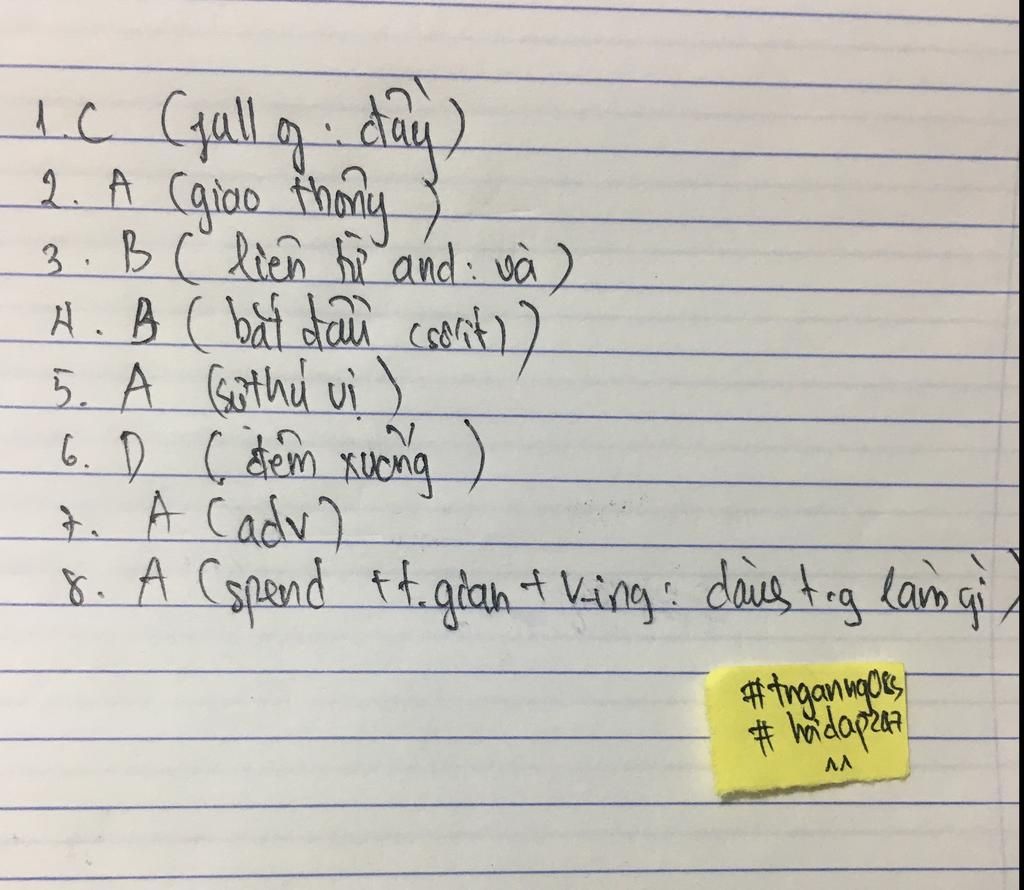 1. C (full of : đầy)
2. A (giao thông)
3. B ( liên từ and : và )
4. B ( bắt đầu (số ít) )
5. A (sự thú vị)
6. D ( đếm xuống )
7. A (adv)
8. A (spend + t.gian + V-ing : dành t.g làm gì)
# hoidap247
^^